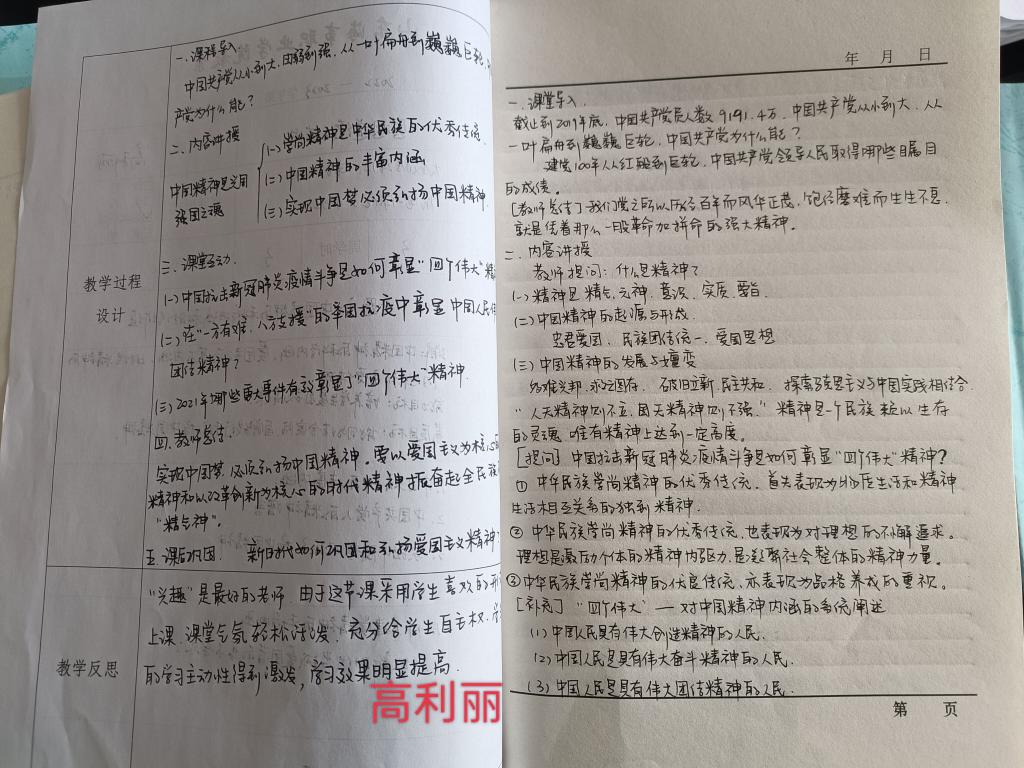 一.课程导入
中国共产党从小到大.由弱到强.从一叶扁舟到巍巍巨轮,
产党为什么能?
二、内容讲授
中国精神是兴国
强国之魂
(一)崇尚精神是中华民族的优秀传统
(二)中国精神的丰富内涵
(三)实现中国梦必须弘扬中国精神.
教学过程
设计
三.课堂互动.
(一)中国抗击新冠肺炎疫情斗争是如何彰显“四个伟大”精
(二)在“一方有难,八方支援”的举国抗疫中彰显中国人民伟
团结精神?
(三)2021年哪些重大事件有效彰显了“四个伟大”精神.
四.教师总结.
实现中国梦必须弘扬中国精神.要以爱国主义为核心的
精神和以改革创新为核心的时代精神振奋起全民族
“精气神”.
五.课后巩固. 新时代如何巩固和弘扬爱国主义精神
教学反思
“兴趣”是最好的老师 由于这节课采用学生喜欢的形
上课.课堂气氛轻松活泼.充分给学生自主权.学
的学习主动性得到激发,学习效果明显提高.
高利丽
年 月 日
一.课堂导入.
截止到2019年底,中国共产党员人数9191.4万.中国共产党从小到大.从
一叶扁舟到巍巍巨轮.中国共产党为什么能?
建党100年从红船到巨轮.中国共产党领导人民取得哪些瞩目
的成绩。
[教师总结]我们党之所以历经百年而风华正茂,饱经磨难而生生不息.
就是凭着那么一股革命加拼命的强大精神。
二.内容讲授
教师提问:什么是精神?
(一)精神是精气,元神.意识.实质.要旨.
(二)中国精神的起源与形成.
忠君爱国.民族团结统一.爱国思想
(三)中国精神的发展与嬗变
纾难救邦.求之图存.破旧立新.民主共和.探索马克思主义与中国实践相结合.
“人无精神则不立.国无精神则不强.”精神是一个民族赖以生存
的灵魂 唯有精神上达到一定高度。
[提问]中国抗击新冠肺炎疫情斗争是如何彰显“四个伟大”精神?
①中华民族崇尚精神的优秀传统.首先表现为物质生活和精神
生活相互关系的独到精神.
②中华民族崇尚精神的优秀传统.也表现为对理想的不懈追求。
理想是激励个体的精神内驱力.是凝聚社会整体的精神力量。
③中华民族崇尚精神的优良传统.亦表现为品格养成的重视。
[补充]“四个伟大”—对中国精神内涵的系统阐述
(1)中国人民具有伟大创造精神的人民.
(2)中国人民是具有伟大奋斗精神的人民.
(3)中国人民是具有伟大团结精神的人民.
第 页